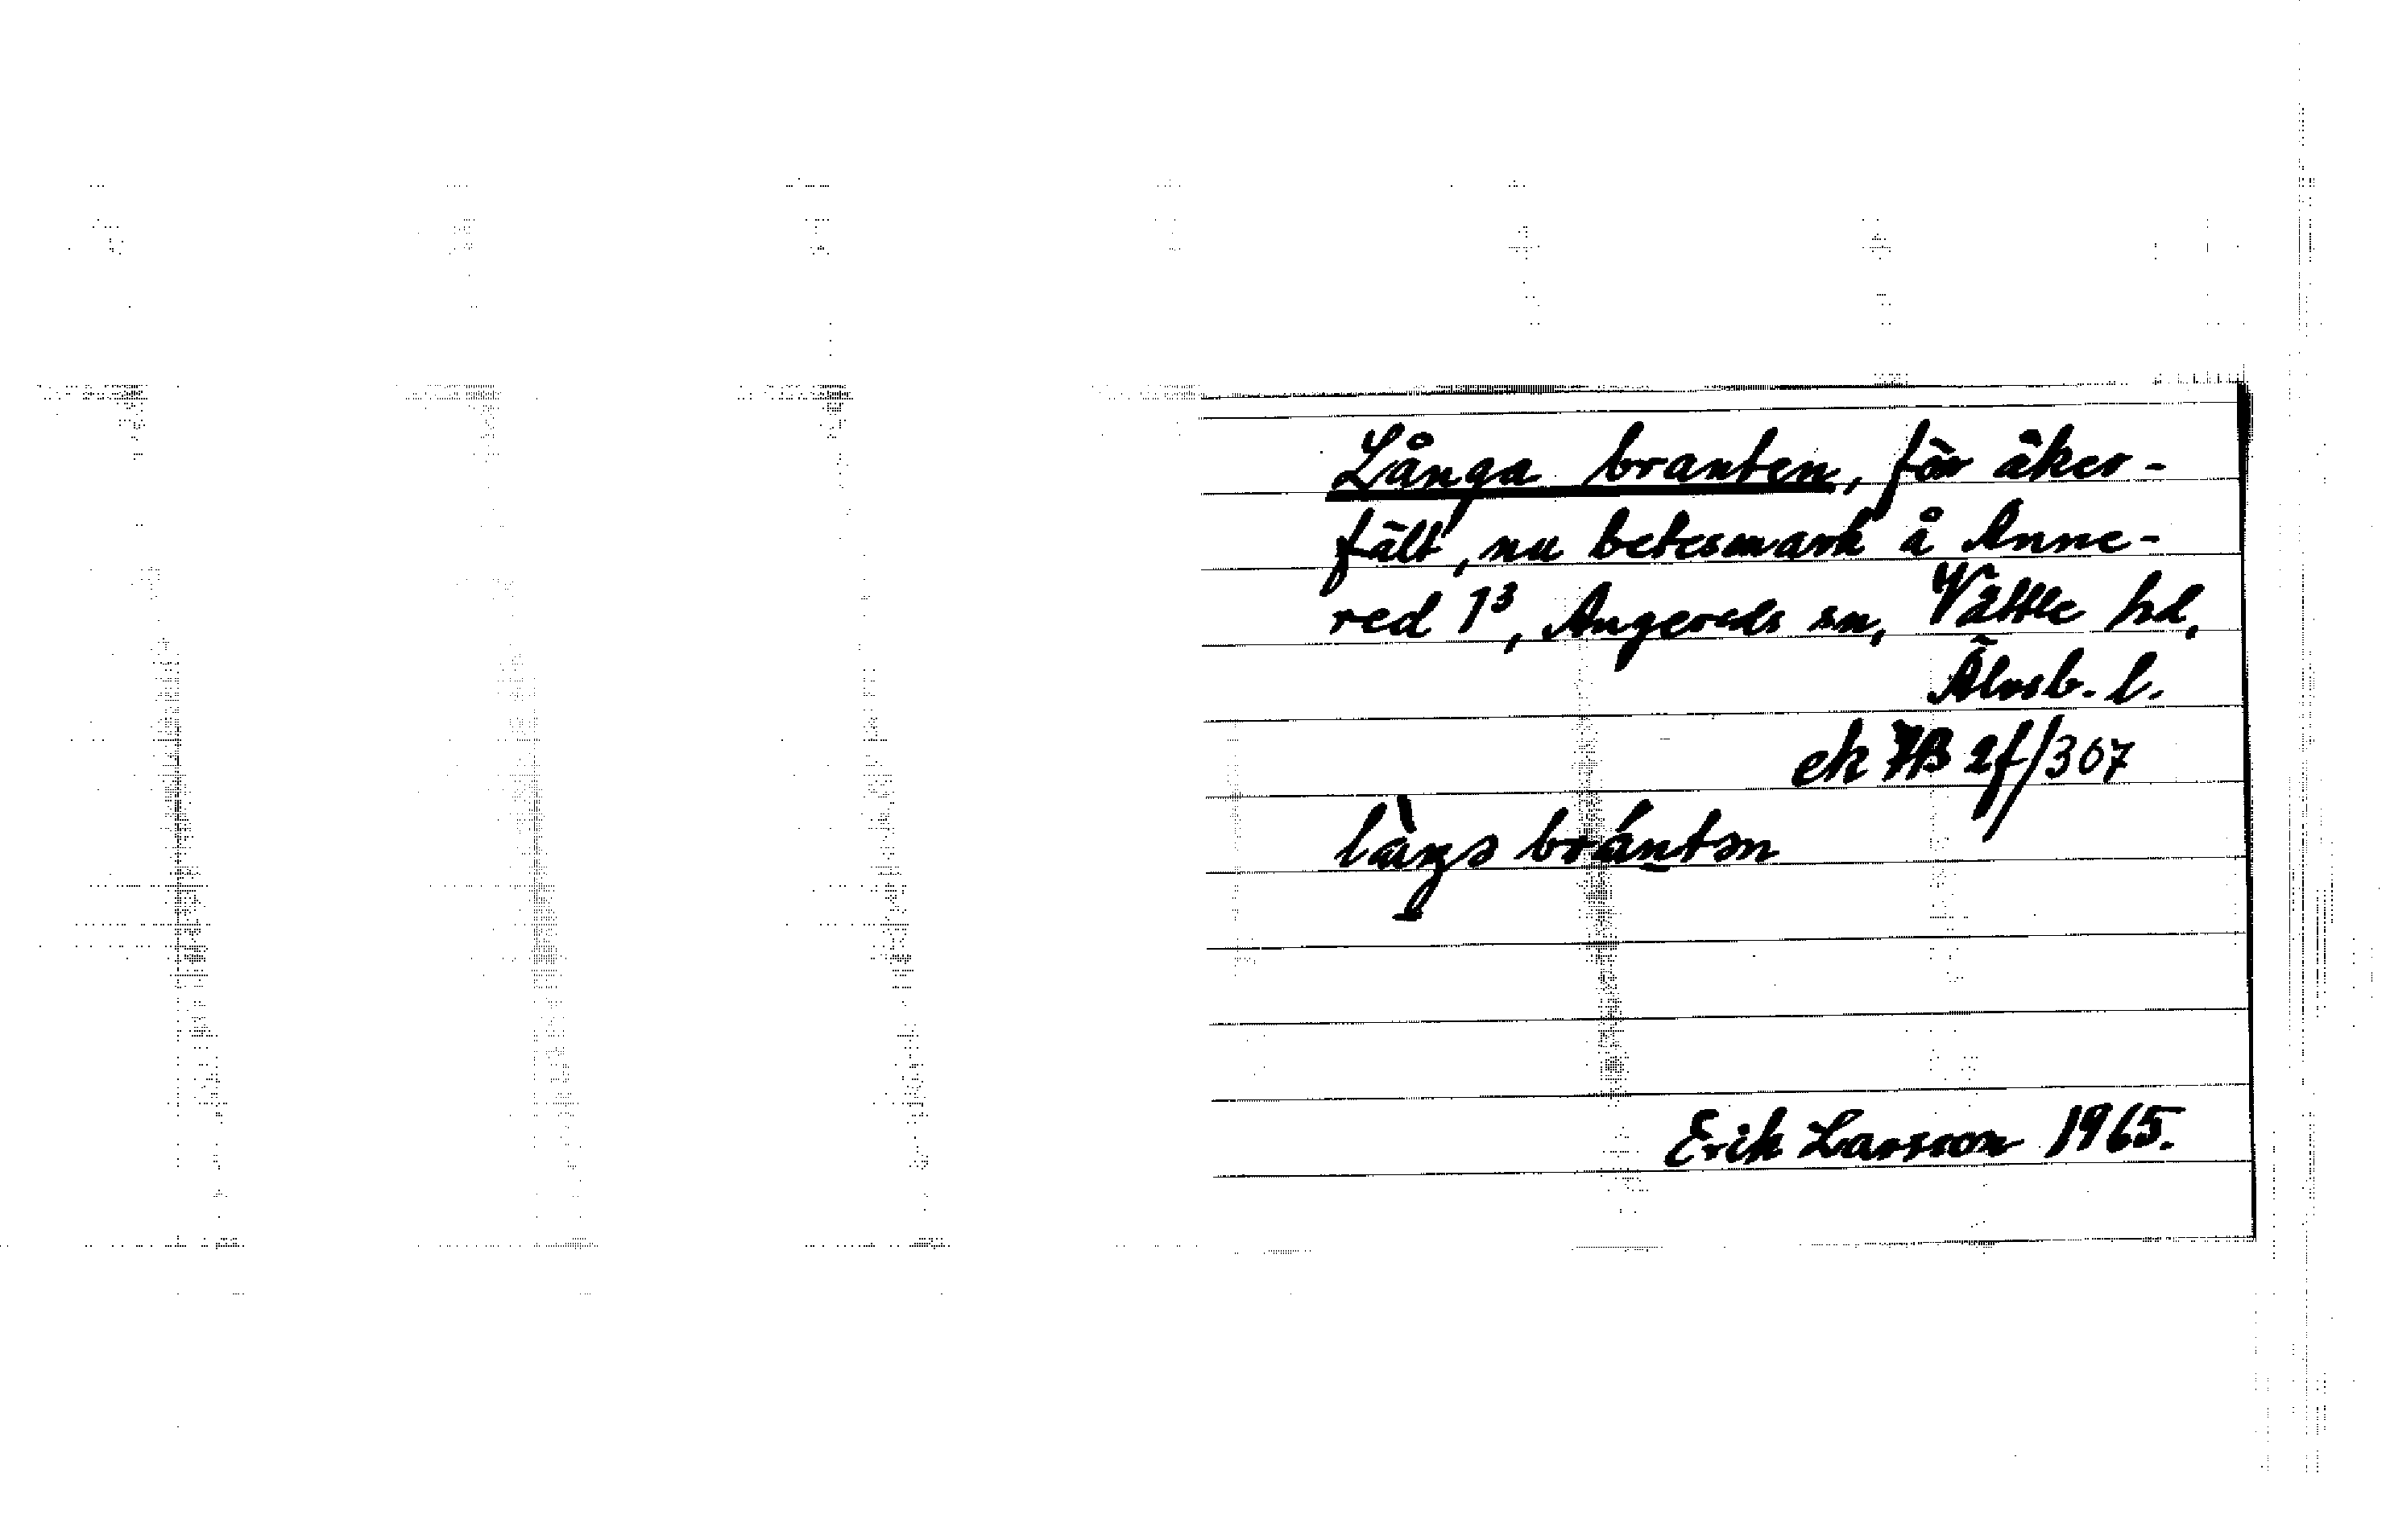 Långa branten, för åker-
fält, nu betesmark å Anne-
red 1³, Angereds sn, Vättle hd,
Älvsb. l.
ek 7B 2f/307
Erik Larsson 1965.